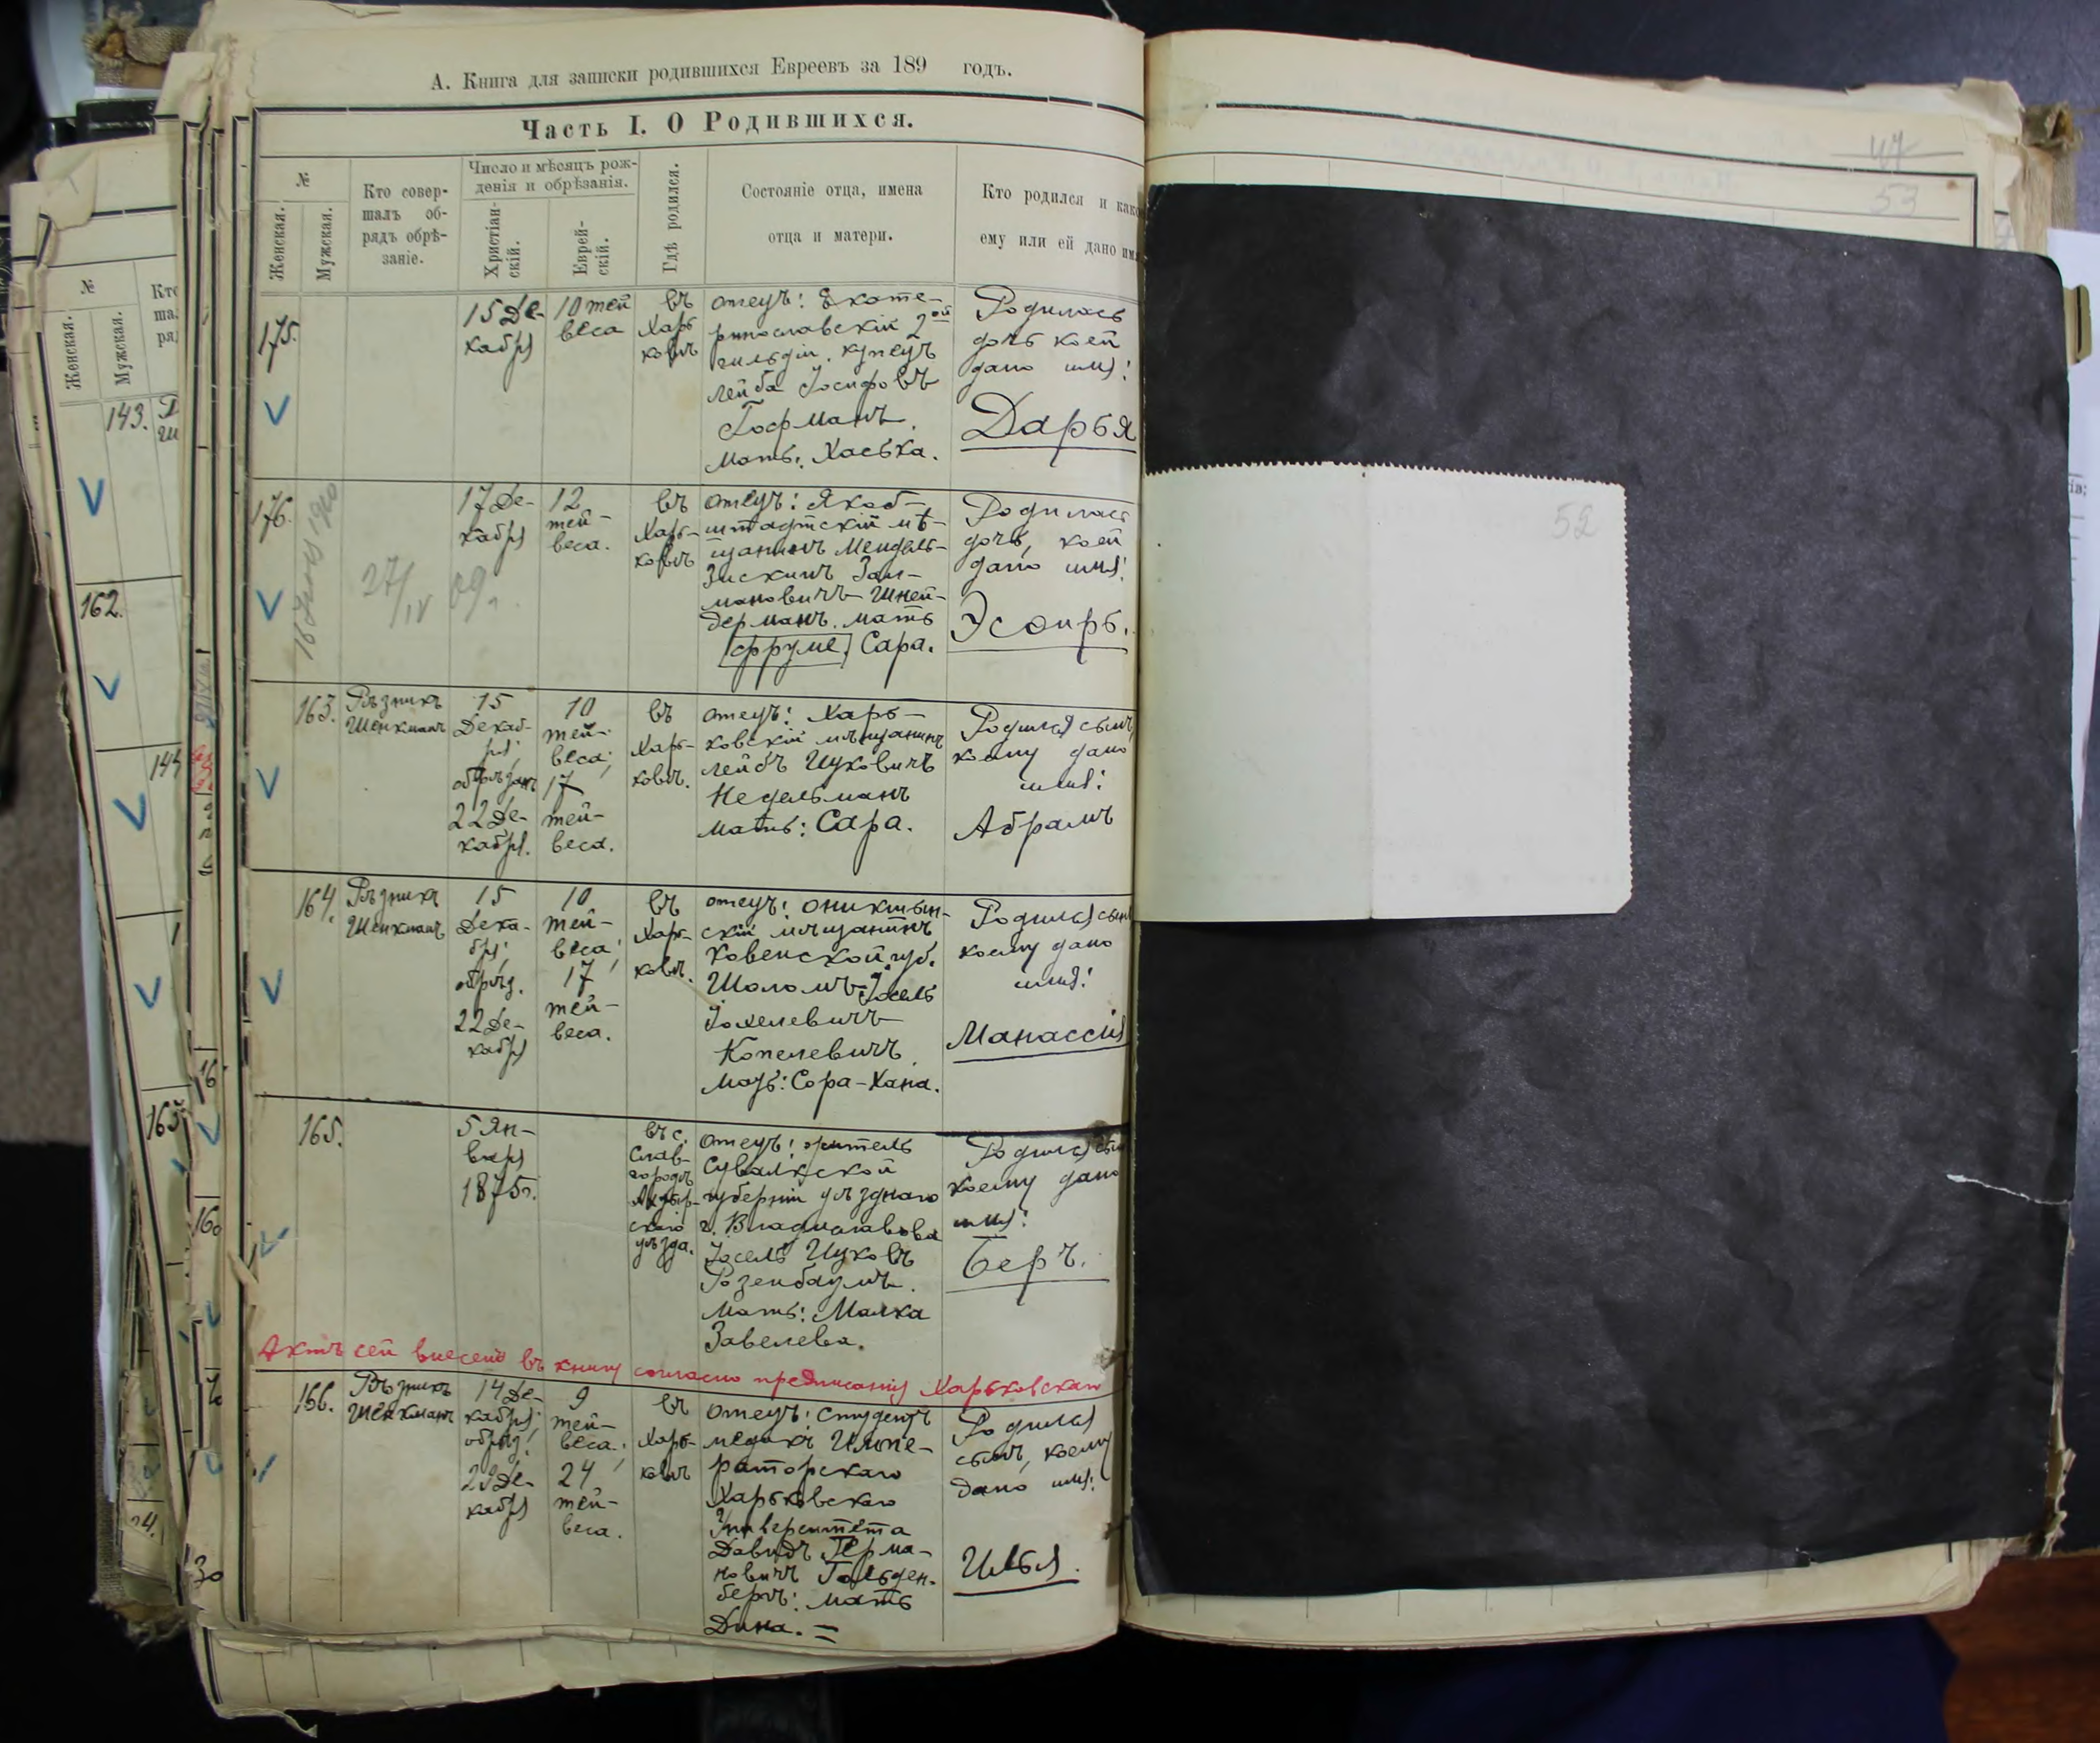 А. Книга для записки родившихся Евреевъ за 189 годъ.
Часть I. О Родившихся.
№
Женская.
Мужская.
Кто совер-
шалъ об-
рядъ обрѣ-
заніе.
Число и мѣсяцъ рож-
денія и обрѣзанія.
Христіан-
скій.
Еврей-
скій.
Гдѣ родился.
Состояніе отца, имена
отца и матери.
Кто родился и како
ему или ей дано им
175.
15 Де-
кабря
10 тей
веса
въ
Харь
ковѣ
отецъ: Екате-
ринославскій 2ой
гильдіи купецъ
Лейба Іосифовъ
Гофманъ.
Мать: Хаська.
Родилась
дочь коей
дано имя:
Дарья
176.
27/IV 09 г.
17 Де-
кабря
12
тей-
веса.
въ
Харь-
ковѣ
отецъ: Якоб-
штадтскій мѣ-
щанинъ Мендель-
Зискинъ Зал-
мановичъ Шней-
дерманъ. мать
Фруме, Сара.
Родилась
дочь, коей
дано имя:
Эсѳирь.
163.
Рѣзникъ
Шенкманъ
15
Декаб-
ря;
обрѣзанъ
22 Де-
кабря.
10
тей-
веса;
17
тей-
веса.
въ
Харь-
ковѣ.
отецъ: Харь-
ковскій мѣщанинъ
Лейбъ Ицковичъ
Недельманъ
мать: Сара.
Родился сынъ,
коему дано
имя:
Абрамъ
164.
Рѣзникъ
Шенкманъ
15
Дека-
бря;
обрѣз.
22 Де-
кабря
10
тей-
веса;
17
тей-
веса.
въ
Харь-
ковѣ.
отецъ: Оникштын-
скій мѣщанинъ
Ковенской губ.
Шоломъ-Іосель
Іохелевичъ
Копелевичъ.
Мать: Сора-Хана.
Родился сынъ
коему дано
имя:
Манассія
165.
5 Ян-
варя
1875 г.
въ с.
Слав-
городѣ
Ахтыр-
скаго
уѣзда.
отецъ: житель
Сувалкской
губерніи уѣзднаго
г. Владиславова
Іосель Ицковъ
Розенбаумъ.
Мать: Малка
Завелева.
Родился сын
коему дано
имя:
Беръ.
Актъ сей внесенъ въ книгу согласно предписанія Харьковскаго
166.
Рѣзникъ
Шенкманъ
14 Де-
кабря;
обрѣз.
Де-
кабря
9
тей-
веса;
24
тей-
веса.
въ
Харь-
ковѣ
отецъ: студентъ
медикъ Импе-
раторскаго
Харьковскаго
Университета
Давидъ Герма-
новичъ Гольден-
бергъ: мать
Дина.
Родился
сынъ, коему
дано имя:
Илья.
№
Женская.
Мужская.
143.
162.
144
163
47
53
52